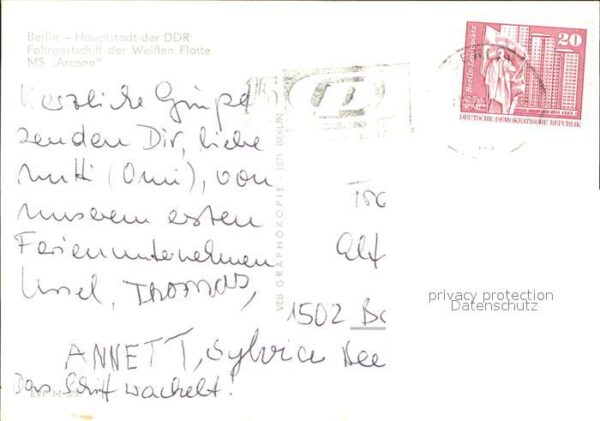 Berlin – Hauptstadt der DDR
Fahrgastschiff der Weißen Flotte
MS „Arcona"
20
Berlin-Leninplatz
DEUTSCHE DEMOKRATISCHE REPUBLIK
Herzliche Grüße
senden Dir, liebe
Mutti (Omi), von
unserem ersten
Ferienunternehmen
Ursel, THOMAS,
ANNETT, Sylvia
Das Schiff wackelt!
VEB GRAPHOKOPIE · 1071 BERLIN
1502
privacy protection
Datenschutz